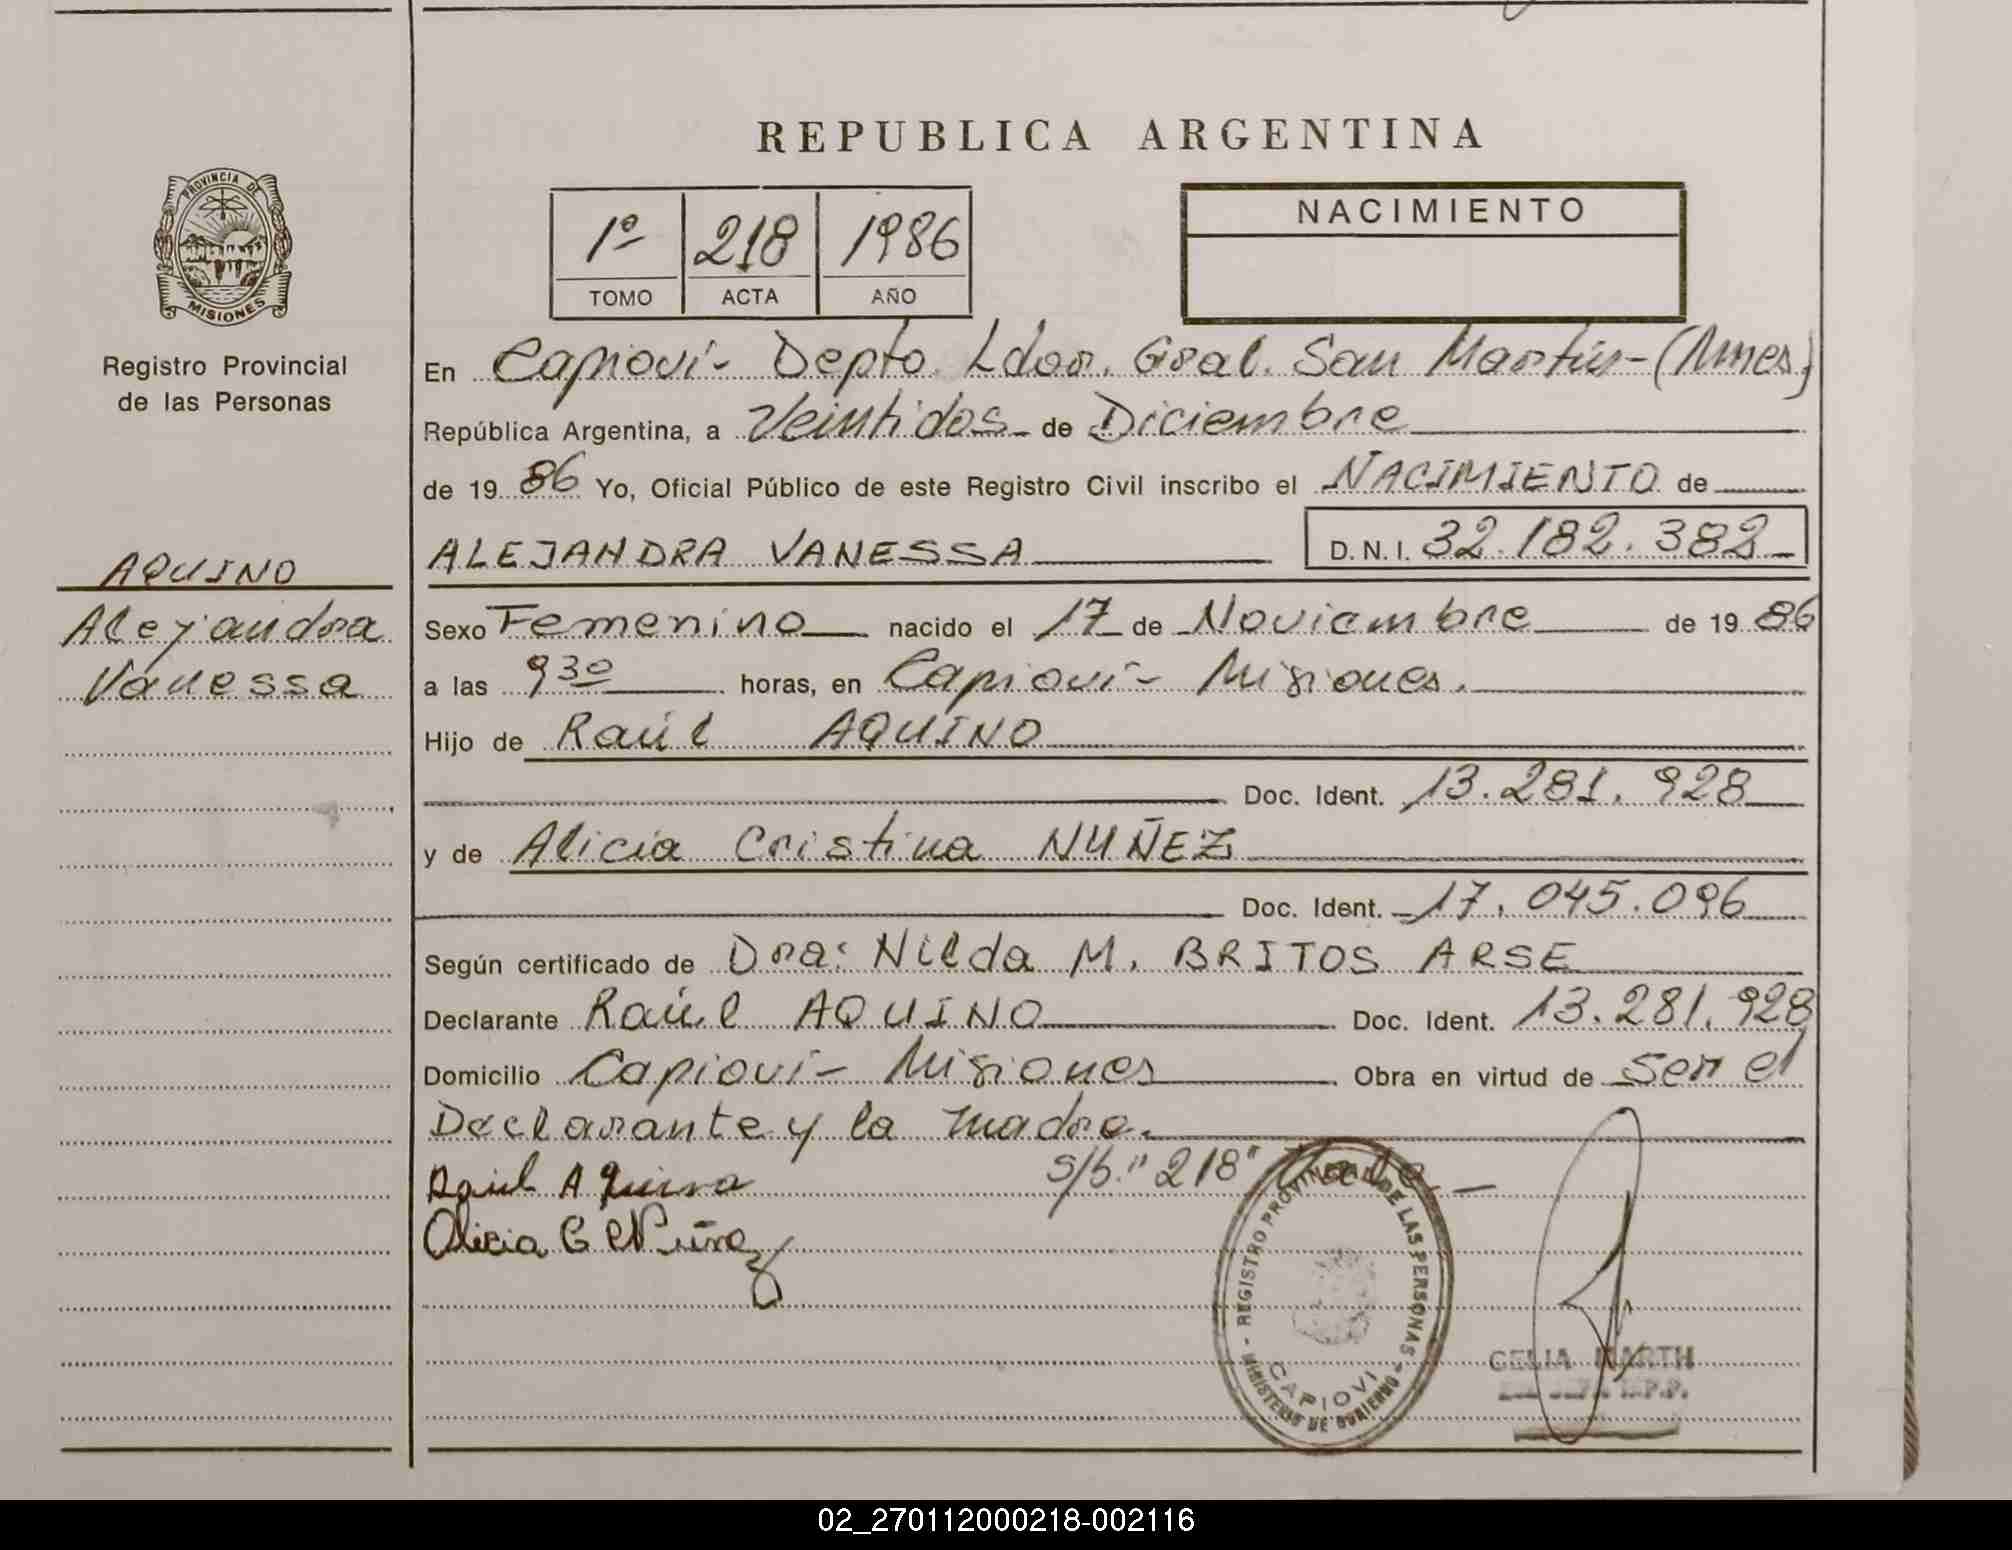 REPUBLICA ARGENTINA
PROVINCIA DE
MISIONES
Registro Provincial
de las Personas
1º 218 1986
TOMO ACTA AÑO
NACIMIENTO
En Capioví- Depto. Ldor. Gral. San Martín-(Mnes)
República Argentina, a Veintidos de Diciembre
de 19 86 Yo, Oficial Público de este Registro Civil inscribo el NACIMIENTO de
ALEJANDRA VANESSA D.N.I. 32.182.382
AQUINO
Alejandra
Vanessa
Sexo Femenino nacido el 17 de Noviembre de 19 86
a las 9 30 horas, en Capioví- Misiones.
Hijo de Raúl AQUINO
Doc. Ident. 13.281.928
y de Alicia Cristina NUÑEZ
Doc. Ident. 17.045.096
Según certificado de Dra: Nilda M. BRITOS ARSE
Declarante Raúl AQUINO Doc. Ident. 13.281.928
Domicilio Capioví- Misiones Obra en virtud de ser el
Declarante y la madre.
Raul Aquino s/b. "218" Vale
Alicia C Nuñez
REGISTRO PROVINCIAL DE LAS PERSONAS
CAPIOVI
MINISTERIO DE GOBIERNO
CELIA MARTH
02_270112000218-002116